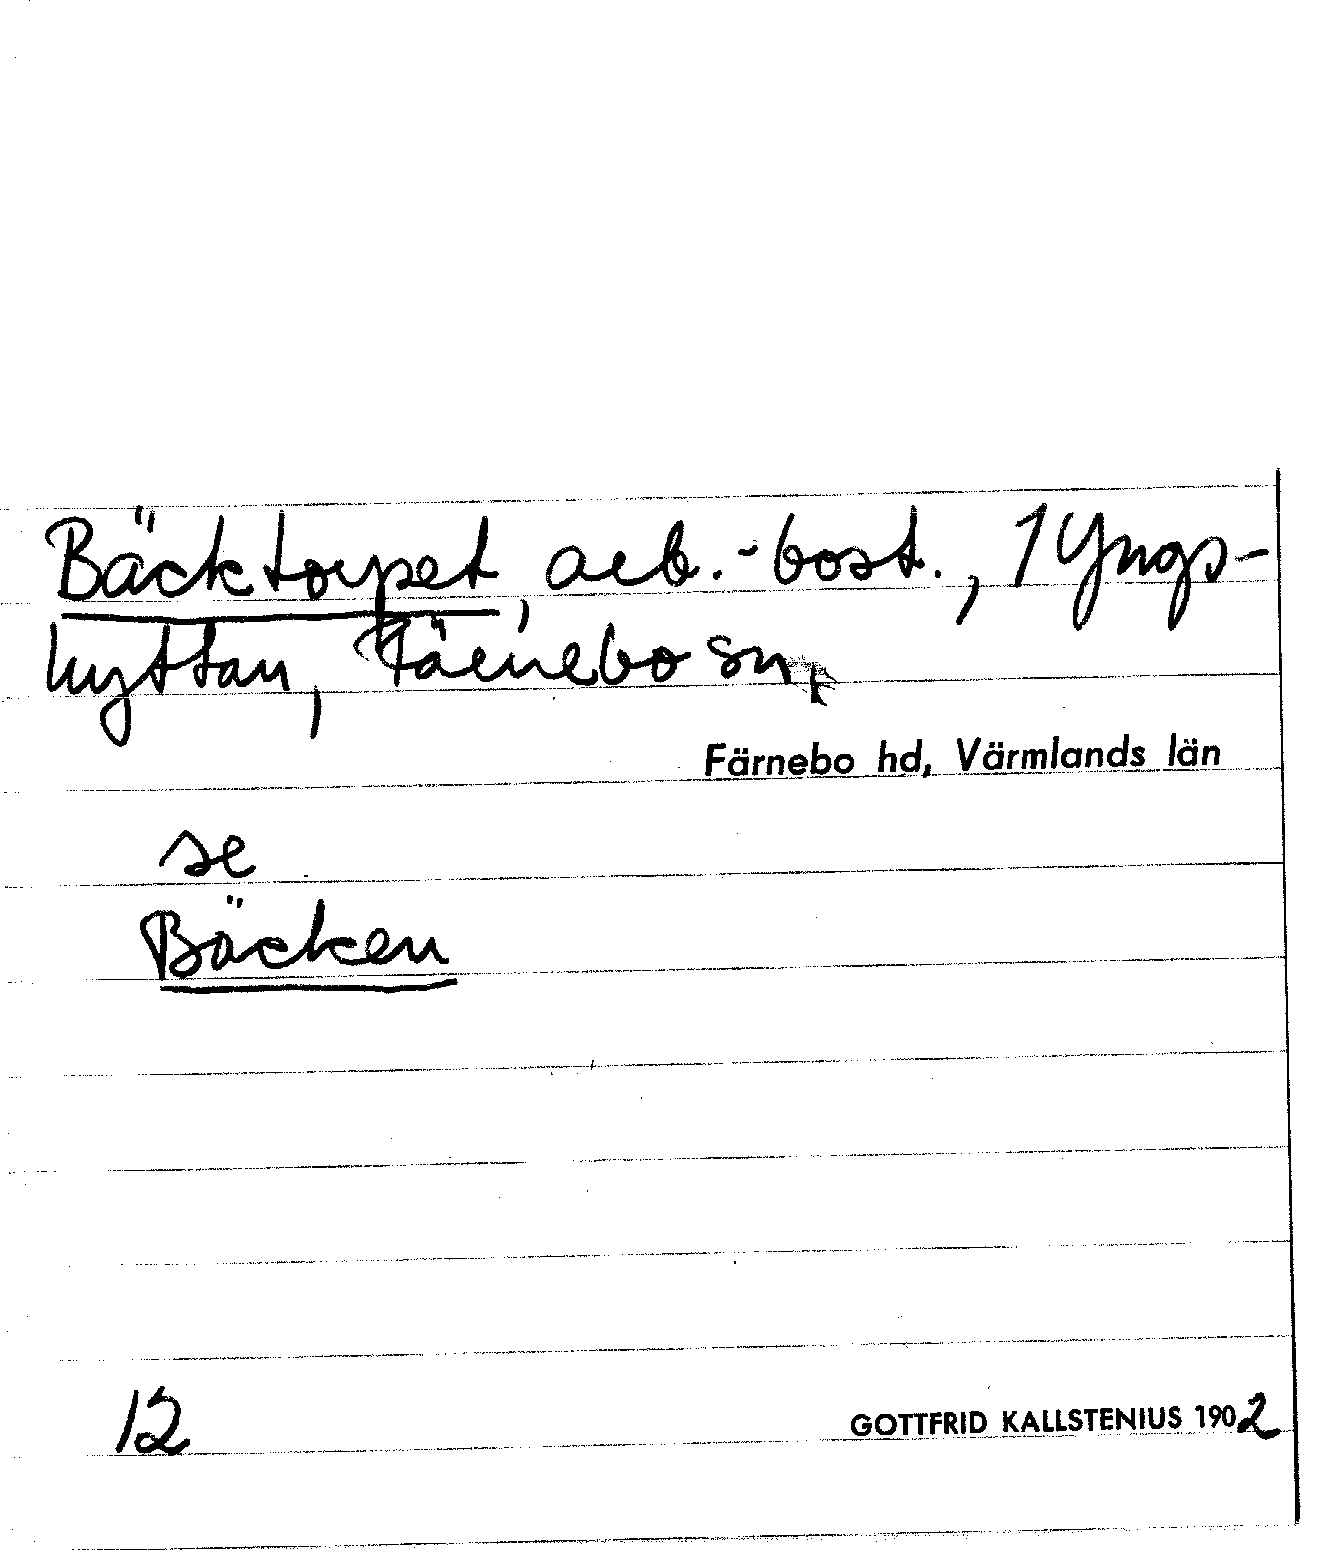 Bäcktorpet, arb.-bost., 1 Yngs-
hyttan, Färnebo sn,
Färnebo hd, Värmlands län
se
Bäcken
12
GOTTFRID KALLSTENIUS 1902